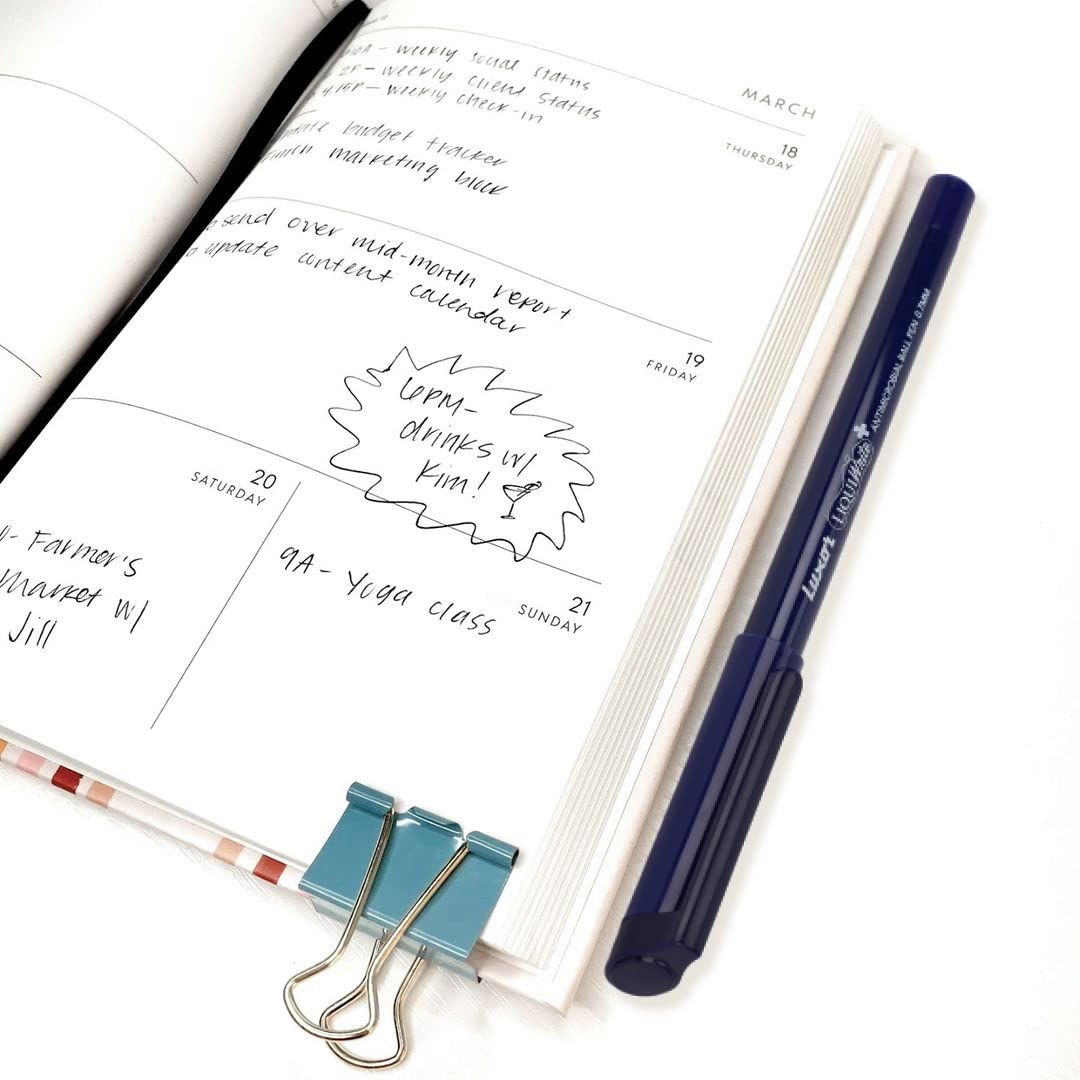 MARCH
10A - weekly social status
2P - weekly client status
4:15P - weekly check-in
18
THURSDAY
update budget tracker
finish marketing block
send over mid-month report
update content calendar
19
FRIDAY
6PM-
drinks w/
Kim!
20
SATURDAY
Farmer's
Market w/
Jill
9A - Yoga class
21
SUNDAY
Luxor LIQUIWrite ANTIMICROBIAL BALL PEN 0.7MM